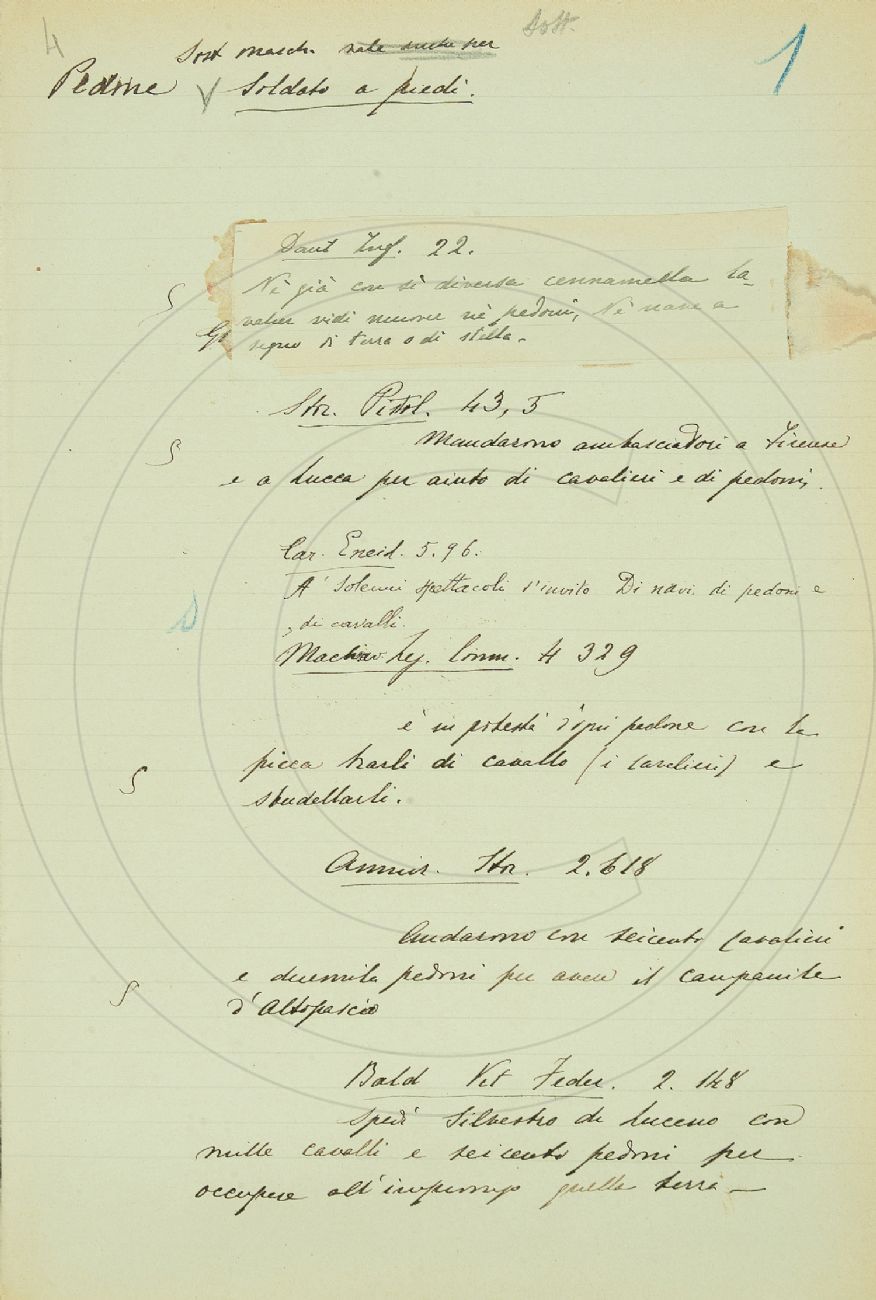 4
Sott.
1
Sost masch. vale anche per
Pedone V Soldato a piedi.
Dant Inf. 22.
Nè già con sì diversa cennamella Ca-
valier vidi muover nè pedoni, Nè nave a
segno di terra o di stella.
Stor. Pistol. 43, 5
Mandarono ambasciadori a Firenze
e a Lucca per aiuto di cavalieri e di pedoni,
Car. Eneid. 5.96.
A' solenni spettacoli l'invito Di navi di pedoni e
di cavalli.
Machiav Leg. Comm. 4 329
è in potestà d'ogni pedone con la
picca trarli di cavallo (i cavalieri) e
sbudellarli.
Ammir. Stor. 2.618
Andarono con seicento cavalieri
e duemila pedoni per avere il campanile
d'Altopascio
Bald Vit Feder. 2. 148
Spedì Silvestro da Luceno con
mille cavalli e seicento pedoni per
occupare all'improvviso quella terra —